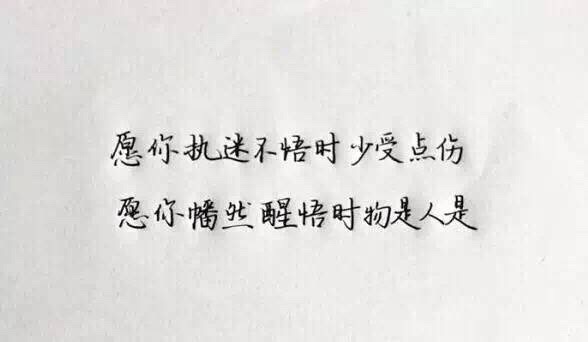 愿你执迷不悟时少受点伤
愿你幡然醒悟时物是人是